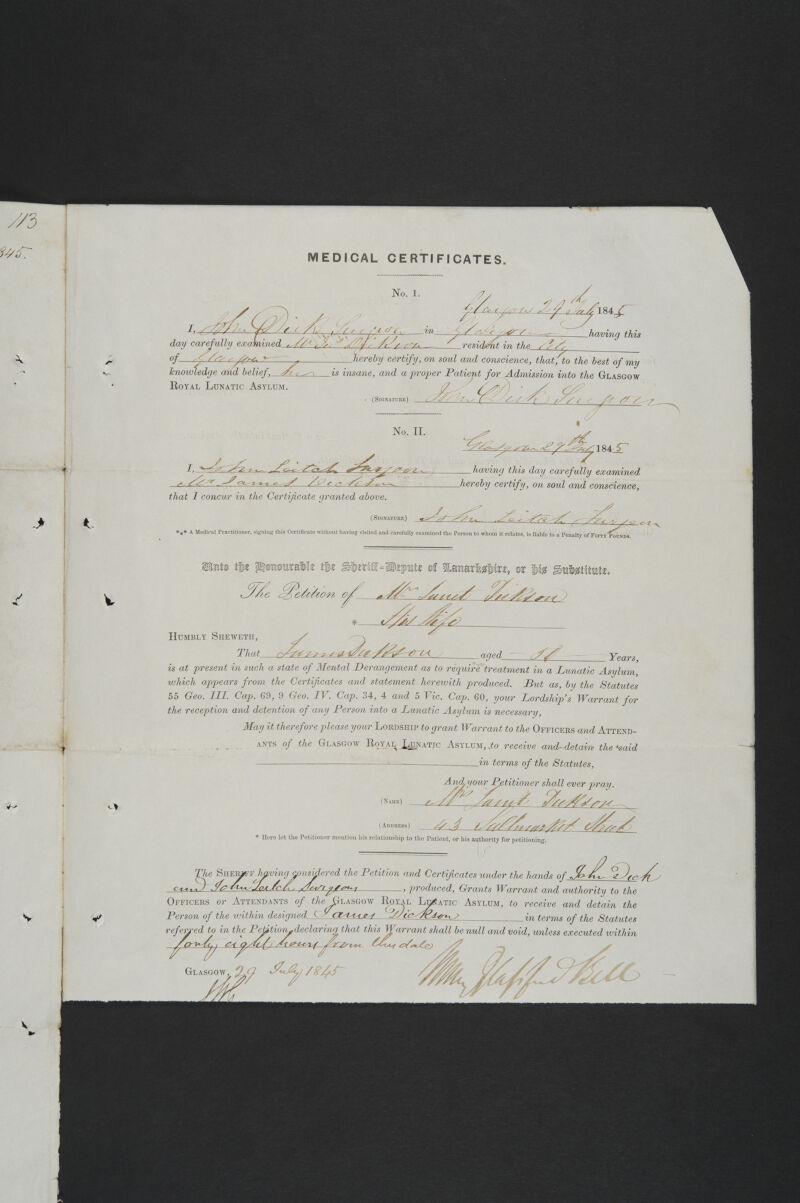 113
845.
MEDICAL CERTIFICATES.
No. I.
Glasgow 29th July 1845
I, John Dick Surgeon in Glasgow having this
day carefully examined Mr Jas Dickson resident in the City
of Glasgow hereby certify, on soul and conscience, that, to the best of my
knowledge and belief, he is insane, and a proper Patient for Admission into the GLASGOW
ROYAL LUNATIC ASYLUM.
(SIGNATURE) John Dick Surgeon
No. II.
Glasgow 29th July 1845
I, John Leitch Surgeon having this day carefully examined
Mr James Dickson hereby certify, on soul and conscience,
that I concur in the Certificate granted above.
(SIGNATURE) John Leitch, Surgeon
*⁎* A Medical Practitioner, signing this Certificate without having visited and carefully examined the Person to whom it relates, is liable to a Penalty of FIFTY POUNDS.
Unto the Honourable the Sheriff-Depute of Lanarkshire, or his Substitute.
The Petition of Mrs Janet Dickson
* His Wife
HUMBLY SHEWETH,
That James Dickson aged 58 Years,
is at present in such a state of Mental Derangement as to require treatment in a Lunatic Asylum,
which appears from the Certificates and statement herewith produced. But as, by the Statutes
55 Geo. III. Cap. 69, 9 Geo. IV. Cap. 34, 4 and 5 Vic. Cap. 60, your Lordship's Warrant for
the reception and detention of any Person into a Lunatic Asylum is necessary,
May it therefore please your LORDSHIP to grant Warrant to the OFFICERS and ATTEND-
ANTS of the GLASGOW ROYAL LUNATIC ASYLUM, to receive and detain the said
in terms of the Statutes,
And your Petitioner shall ever pray.
(NAME) Mrs Janet Dickson
(ADDRESS) 43 Saltmarket Street
* Here let the Petitioner mention his relationship to the Patient, or his authority for petitioning.
The SHERIFF having considered the Petition and Certificates under the hands of John Dick
and John Leitch Surgeons, produced, Grants Warrant and authority to the
OFFICERS or ATTENDANTS of the GLASGOW ROYAL LUNATIC ASYLUM, to receive and detain the
Person of the within designed James Dickson in terms of the Statutes
referred to in the Petition, declaring that this Warrant shall be null and void, unless executed within
forty eight hours from this date
GLASGOW, 29 July 1845
Henry Glassford Bell